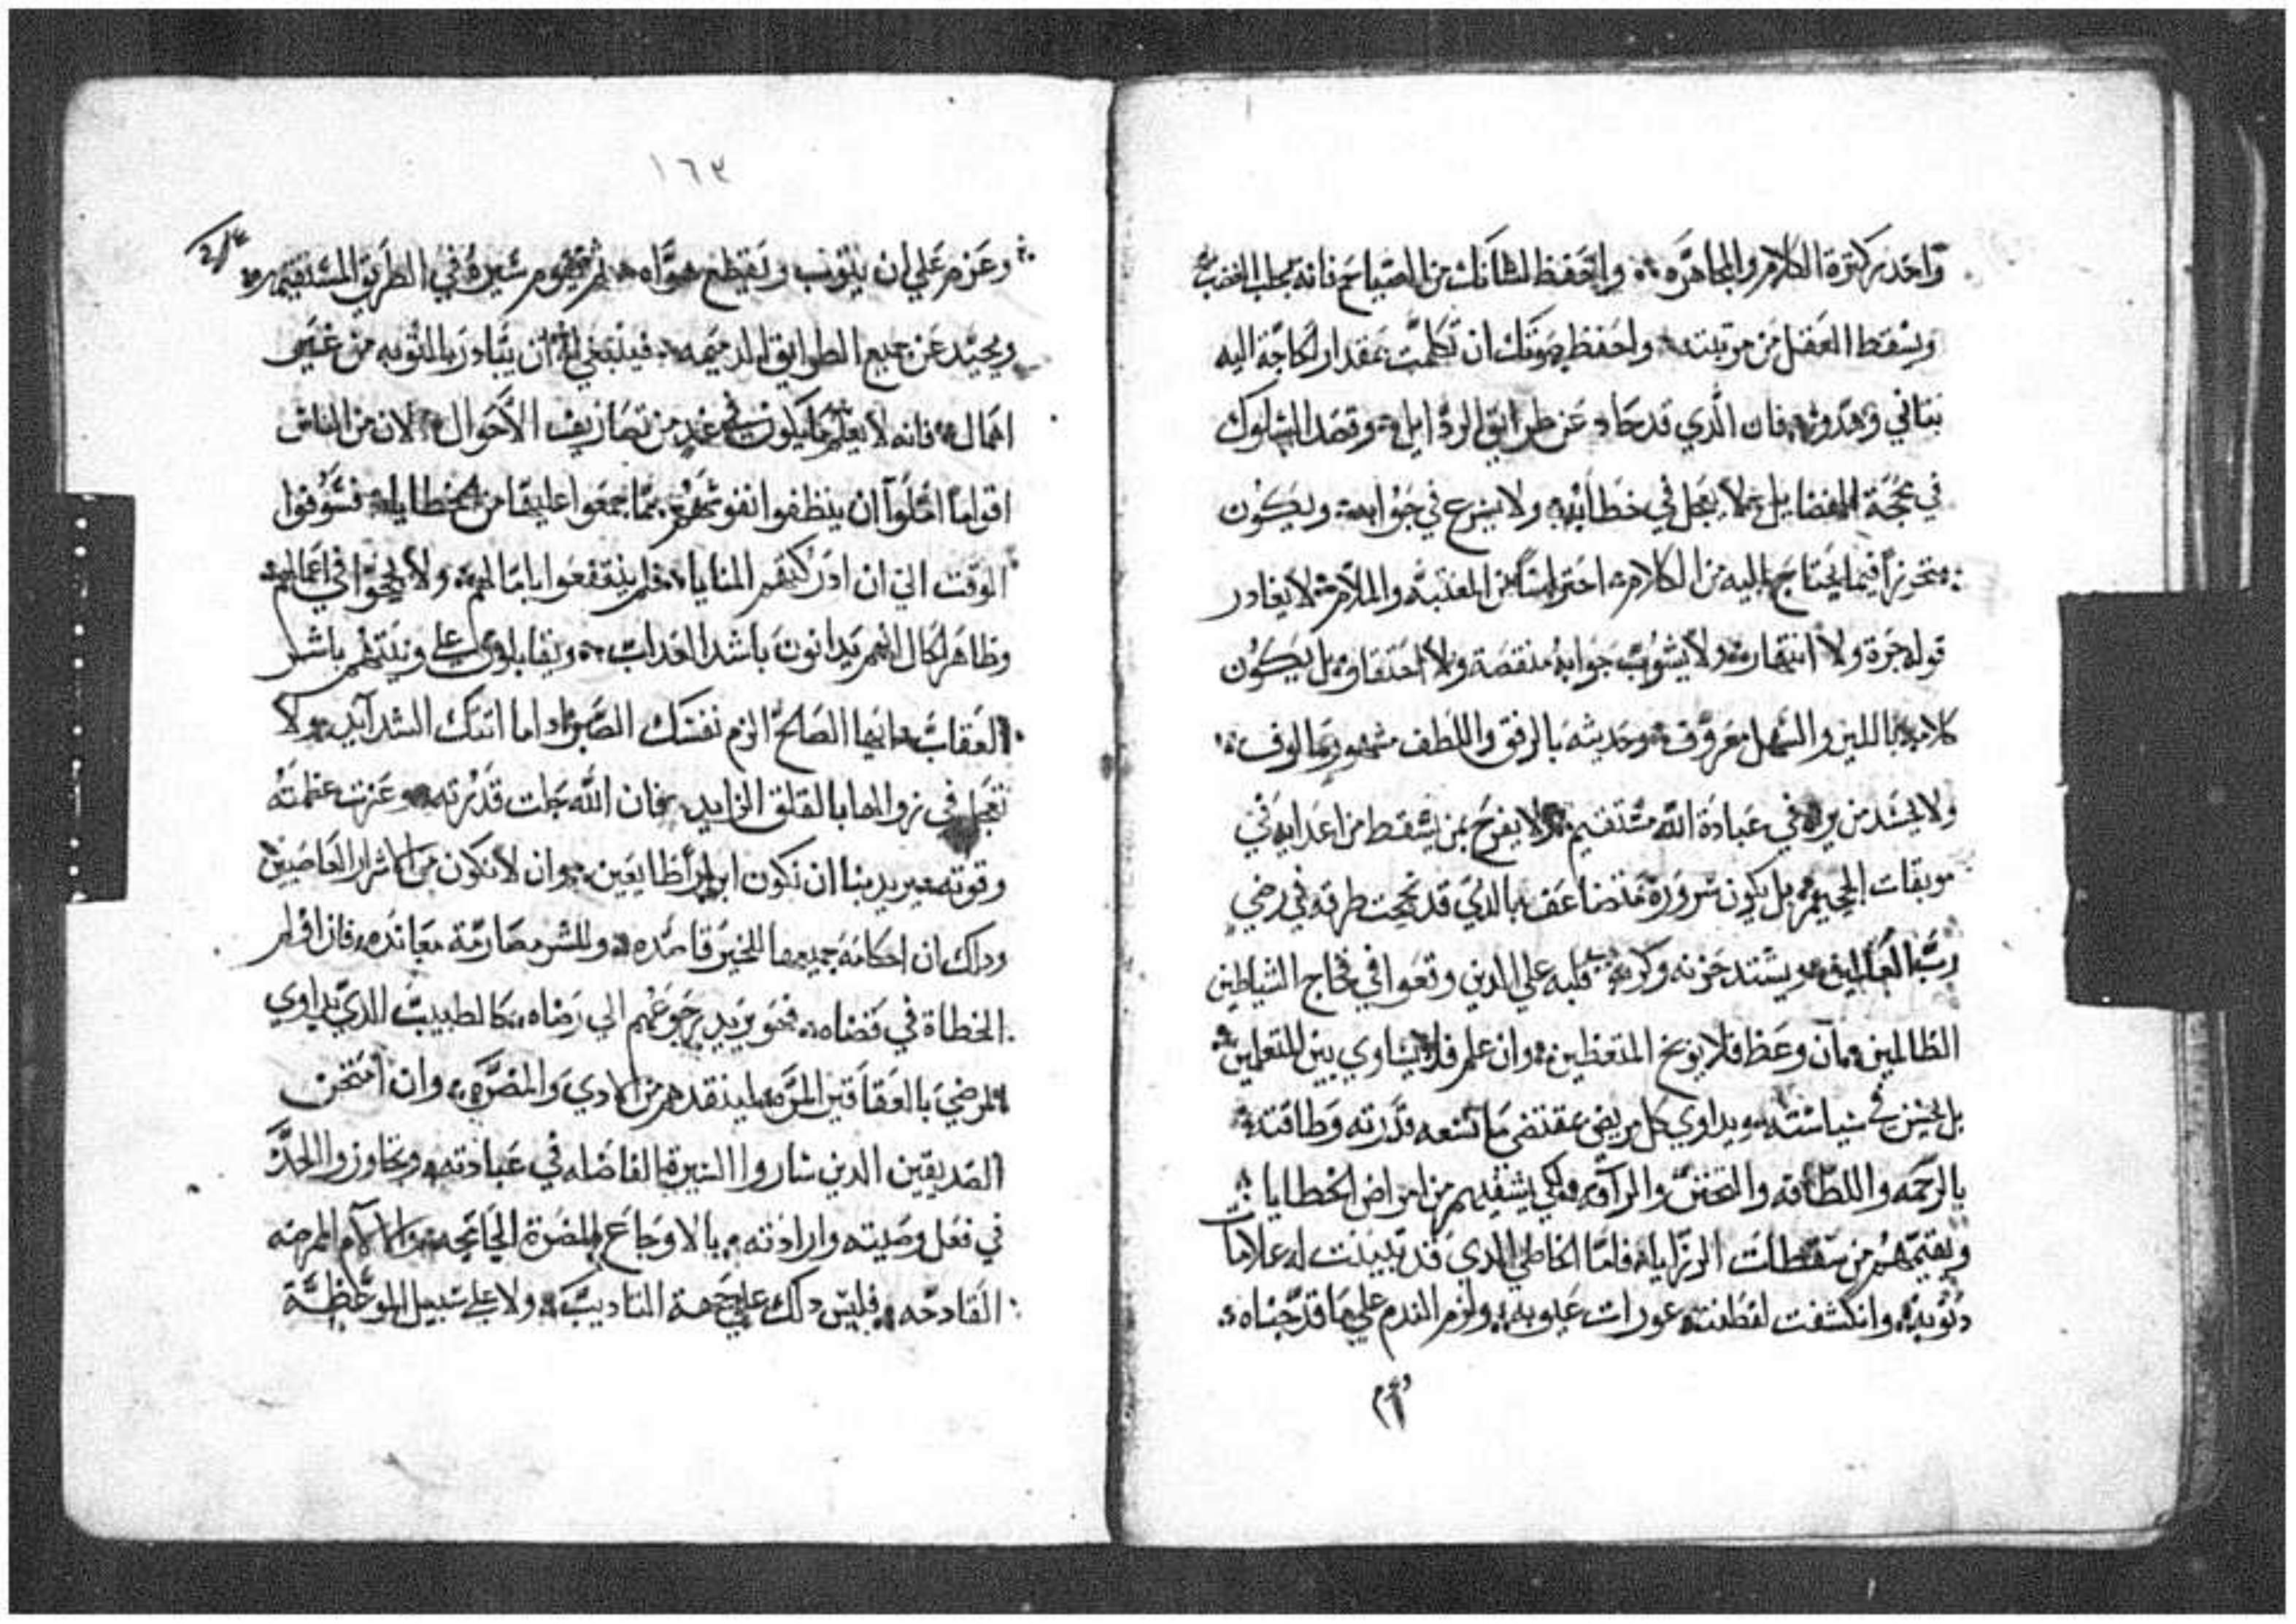 واحدر كترة الكلام والمجاهره واحفظ لسانك من الصياح فانه يجلب الغضب
ويسقط العقل من مرتبته واحفظ صوتك ان تكلمت بمقدار الحاجة اليه
بتاني وهدوء فان الذي قد حاد عن طرايق الردايل وقصد السلوك
في محجة الفضايل لا يعجل في خطابه ولا يسرع في جوابه ويكون
متحرزا فيما يحتاج اليه من الكلام احتراسا من المعتبه والملامة لا يغادر
قوله جرة ولا انتهار ولا يشوب جوابه منقصة ولا احتقار بل يكون
كلامه باللين والسهل معروف وحديثه بالرفق واللطف مشهور مالوف
ولا يحسد من يراه في عبادة الله مستقيم ولا يفرح بمن يسقط من اعدايه في
موبقات الجحيم بل يكون سروره متضاعف بالذي قد نجحت طرقه في رضي
رب العالمين ويشتد حزنه وكربه قلبه علي الذين وقعوا في فخاخ الشياطين
الظالمين فان وعظ فلا يوبخ المتعظين وان علم فلا يساوي بين المتعلمين
بل يحسن في سياسته ويداوي كل مريض بمقتضى ما تسعه قدرته وطاقته
بالرحمه واللطافه والتحنن والرآفه لكي يشفيهم من امراض الخطايا
ويقيمهم من سقطات الرزايا فاما الخاطي الذي قد تبينت له علامات
دنوبه وانكشفت لفطنته عورات عيوبه ولزم الندم علي ما قد جناه
١٦٣
وعزم علي ان يتوب ويقطع هواه ثم يقوم سيره في الطريق المستقيمه
ويحيد عن جميع الطرايق الدميمه فينبغي له ان يبادر بالتوبه من غير
اهمال فانه لا يعلم ما يكون في غد من تصاريف الاحوال لان من الناس
اقواما املوا ان ينظفوا نفوسهم مما جمعوا عليها من الخطايا فسوفوا
الوقت الي ان ادركتهم المنايا فلم ينتفعوا باماالهم ولا نجحوا في اعمالهم
وظاهر الحال انهم يدانون باشد العداب ويقابلون علي ونيتهم باشر
العقاب ايها الصالح الزم نفسك الصبر ادا ما اتتك الشدايد ولا
تعجل في زوالها بالقلق الزايد فان الله جلت قدرته وعزت عظمته
وقوته يريد بنا ان نكون ابرار طايعين وان لا نكون من الاشرار العاصيين
ودلك ان احكامه جميعها للخير قاصده وللشر مصارمة معانده فان اولم
الخطاة في قضاه فهو يريد رجوعهم الي رضاه كالطبيب الذي يداوي
المرضي بالعقاقير المره لينقدهم من الادي والمضره وان امتحن
الصديقين الدين ساروا السيرة الفاضله في عبادته وتجاوزوا الحد
في فعل وصيته وارادته بالاوجاع المضرة الجايحه والالام الممرضه
القادحه فليس دلك علي جهة التاديب ولا علي سبيل الموعظة